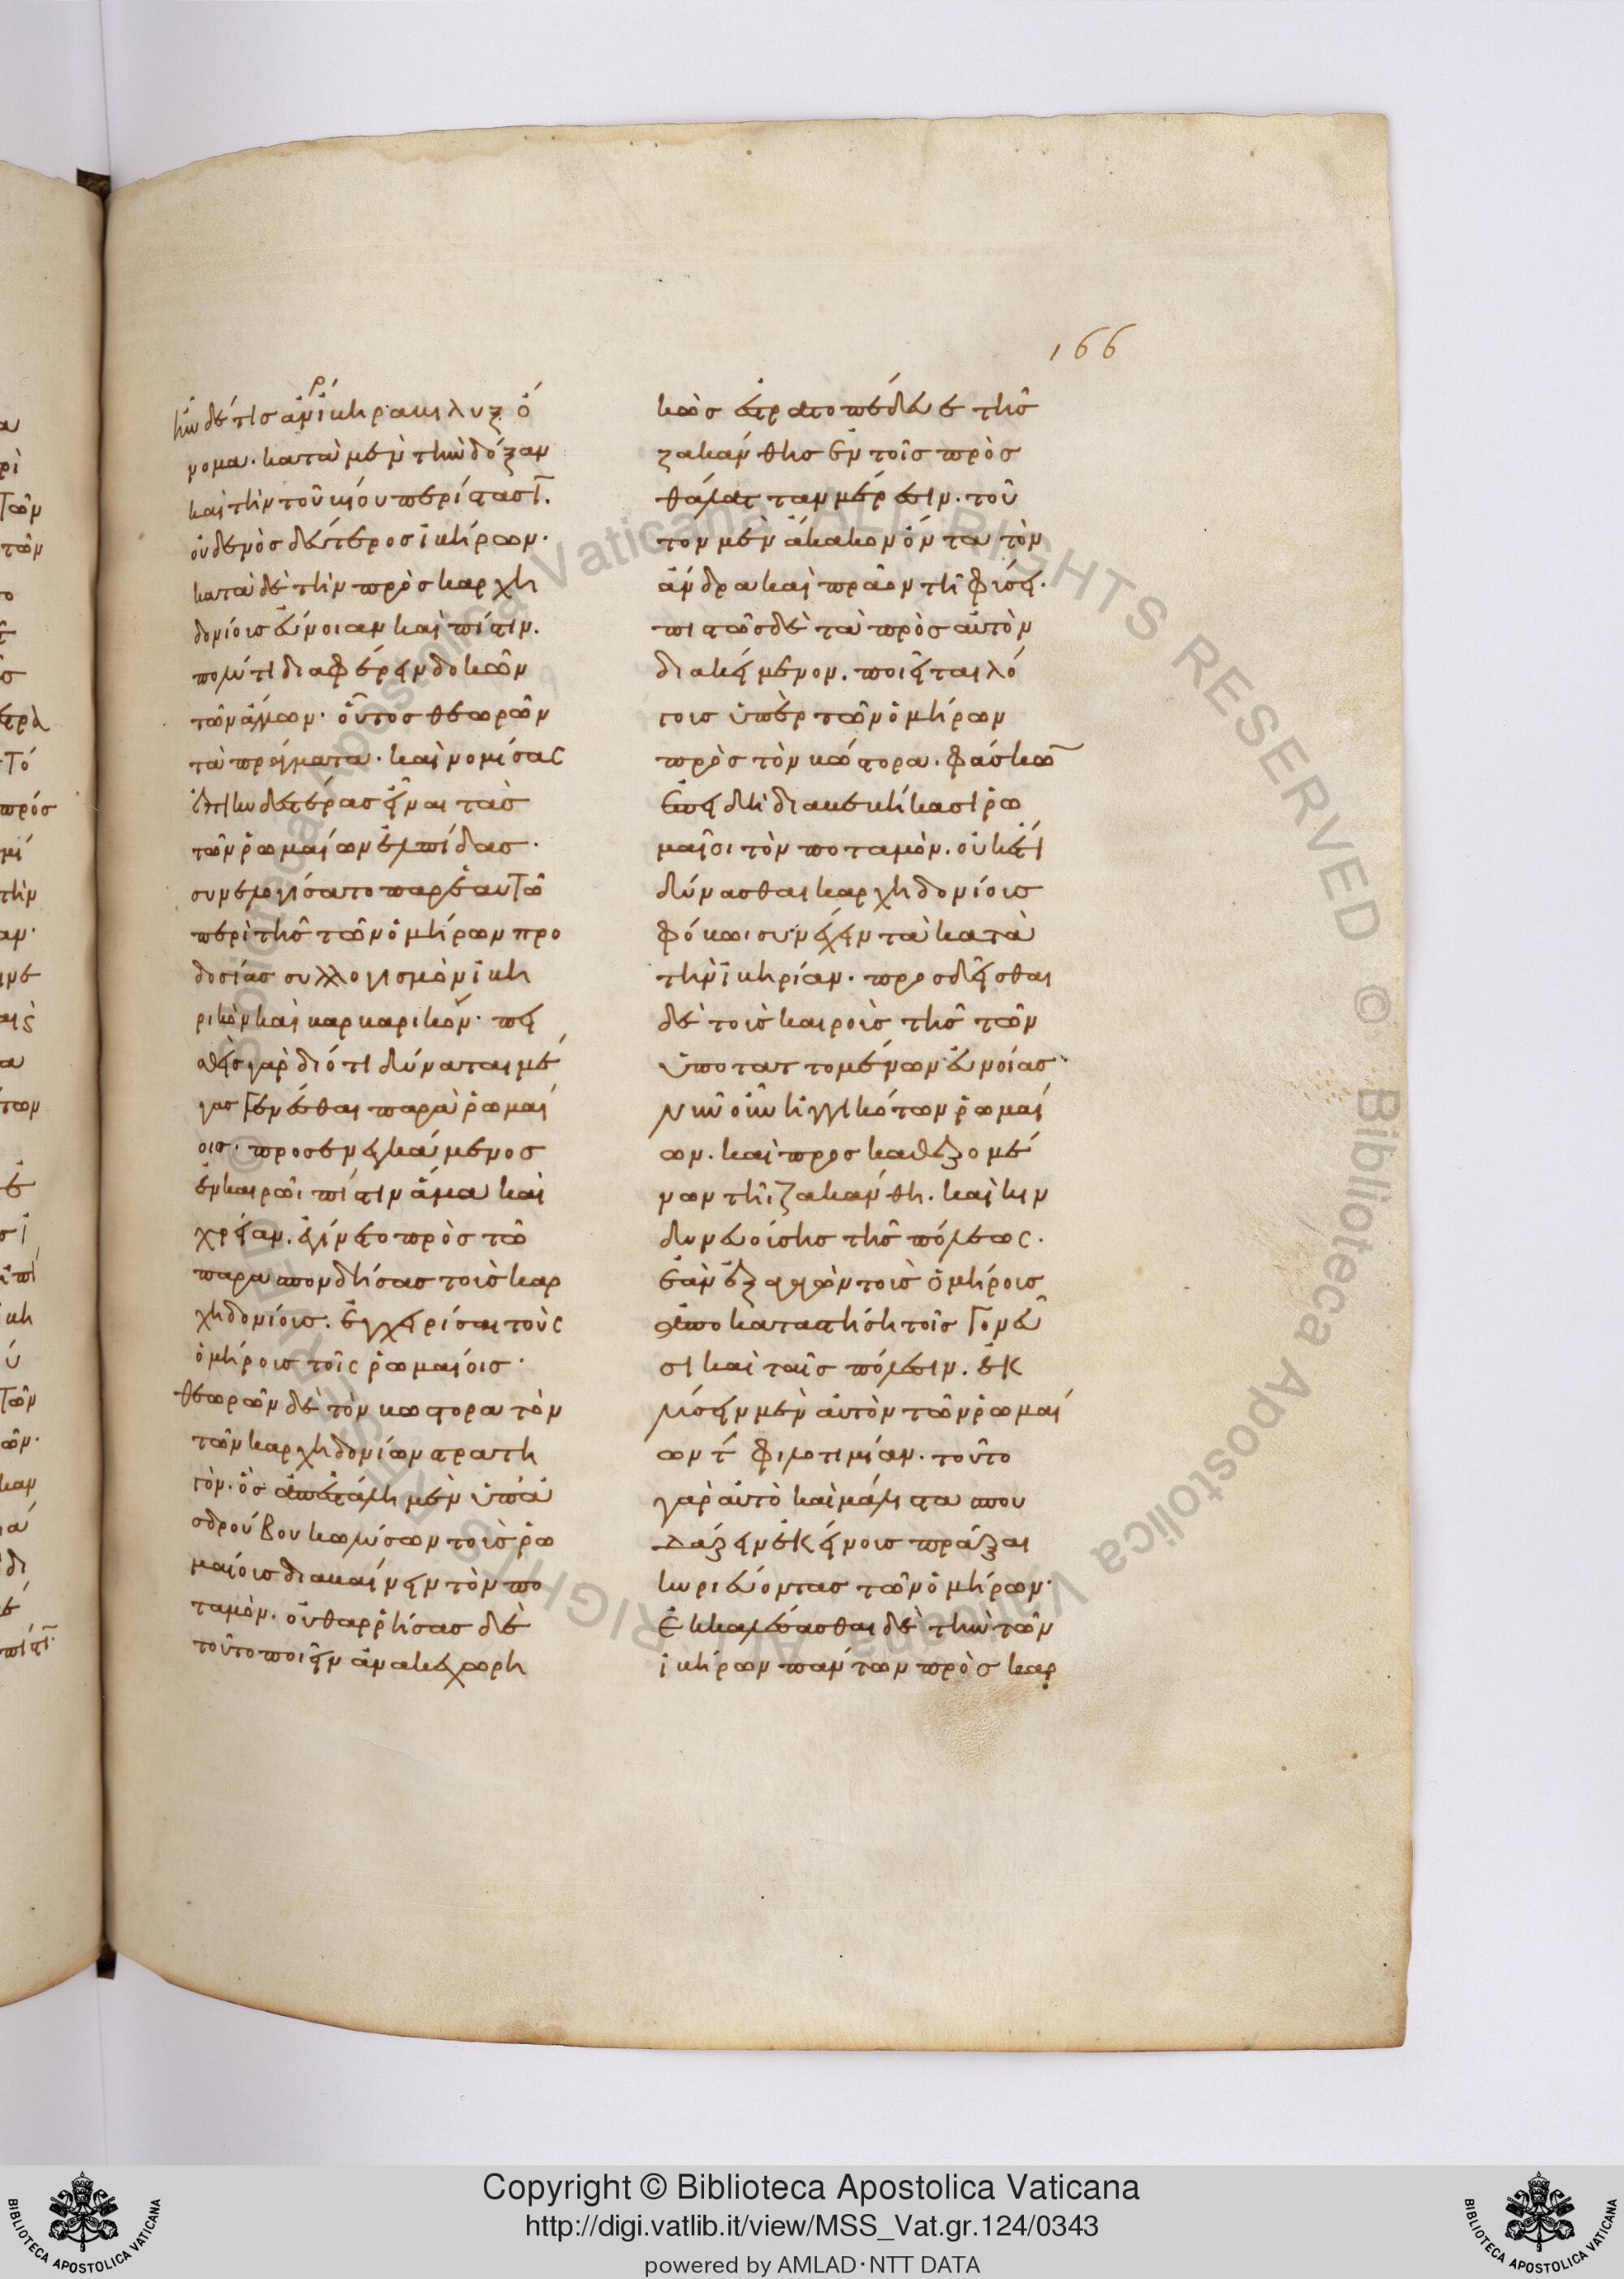 166
ἦν δέ τις ἀνὴρ ἴκηρ ἀκιλυξ ὄ
νομα. κατὰ μὲν τὴν δόξαν
καὶ τὴν τοῦ βίου περίστασιν.
οὐδενὸς δεύτερος ἰβήρων.
κατὰ δὲ τὴν πρὸς καρχη
δονίοις εὔνοιαν καὶ πίστιν.
πολύ τι διαφέρειν δοκῶν
τῶν ἄλλων. οὗτος θεωρῶν
τὰ πράγματα. καὶ νομίσας
ἐπικυδεστέρας εἶναι τὰς
τῶν ῥωμαίων ἐλπίδας.
συνελογίσατο παρ' ἑαυτῶ
περὶ τῆς τῶν ὁμήρων προ
δοσίας συλλογισμὸν ἰβη
ρικὸν καὶ βαρβαρικόν. πει
σθεὶς γὰρ διότι δύναται μέ
γας γενέσθαι παρὰ ῥωμαί
οις. προσενεγκάμενος
ἐν καιρῶι πίστιν ἅμα καὶ
χρείαν. ἐγίνετο πρὸς τῶ
παρασπονδήσας τοὺς καρ
χηδονίους. ἐγχειρίσαι τοὺς
ὁμήρους τοῖς ῥωμαίοις.
θεωρῶν δὲ τὸν βώστορα τὸν
τῶν καρχηδονίων στρατη
γόν. ὃς ἀπεστάλη μὲν ὑπ' ἀ
σδρούβου κωλύσων τοὺς ῥω
μαίους διαβαίνειν τὸν πο
ταμόν. οὐ θαρρήσας δὲ
τοῦτο ποιεῖν ἀνακεχωρη
κὼς ἐστρατοπέδευε τῆς
ζακάνθης ἐν τοῖς πρὸς
θάλατταν μέρεσιν. τοῦ
τον μὲν ἄκακον ὄντα τὸν
ἄνδρα καὶ πρᾶον τῆ φύσει.
πιστῶς δὲ τὰ πρὸς αὐτὸν
διακείμενον. ποιεῖται λό
γους ὑπὲρ τῶν ὁμήρων
πρὸς τὸν βώστορα. φάσκων
ἐπειδὴ διαβεβήκασι ῥω
μαῖοι τὸν ποταμὸν. οὐκέτι
δύνασθαι καρχηδονίους
φόβωι συνέχειν τὰ κατὰ
τὴν ἰβηρίαν. προσδεῖσθαι
δὲ τοὺς καιροὺς τῆς τῶν
ὑποταττομένων εὐνοίας
νῦν οὖν ἠγγικότων ῥωμαί
ων. καὶ προσκαθεζομέ
νων τῆι ζακάνθη. καὶ κιν
δυνευούσης τῆς πόλεως.
ἐὰν ἐξαγαγὼν τοὺς ὁμήρους
ἀποκαταστήση τοῖς γονεῦ
σι καὶ ταῖς πόλεσιν. ἐκ
λύσειν μὲν αὐτὸν τῶν ῥωμαί
ων τὴν φιλοτιμίαν. τοῦτο
γὰρ αὐτὸ καὶ μάλιστα σπου
δάζειν ἐκείνους πρᾶξαι
κυριεύοντας τῶν ὁμήρων.
ἐκκαλέσασθαι δὲ τὴν τῶν
ἰβήρων πάντων πρὸς καρ
Copyright © Biblioteca Apostolica Vaticana
http://digi.vatlib.it/view/MSS_Vat.gr.124/0343
powered by AMLAD·NTT DATA
BIBLIOTECA APOSTOLICA VATICANA
BIBLIOTECA APOSTOLICA VATICANA